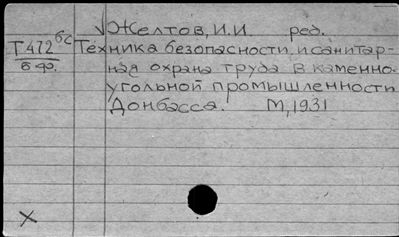 √ Желтов, И.И ред.
Т472 бс Техника безопасности и санитар-
бф. ная охрана труда в каменно-
угольной промышленность
Донбасса. М, 1931
X